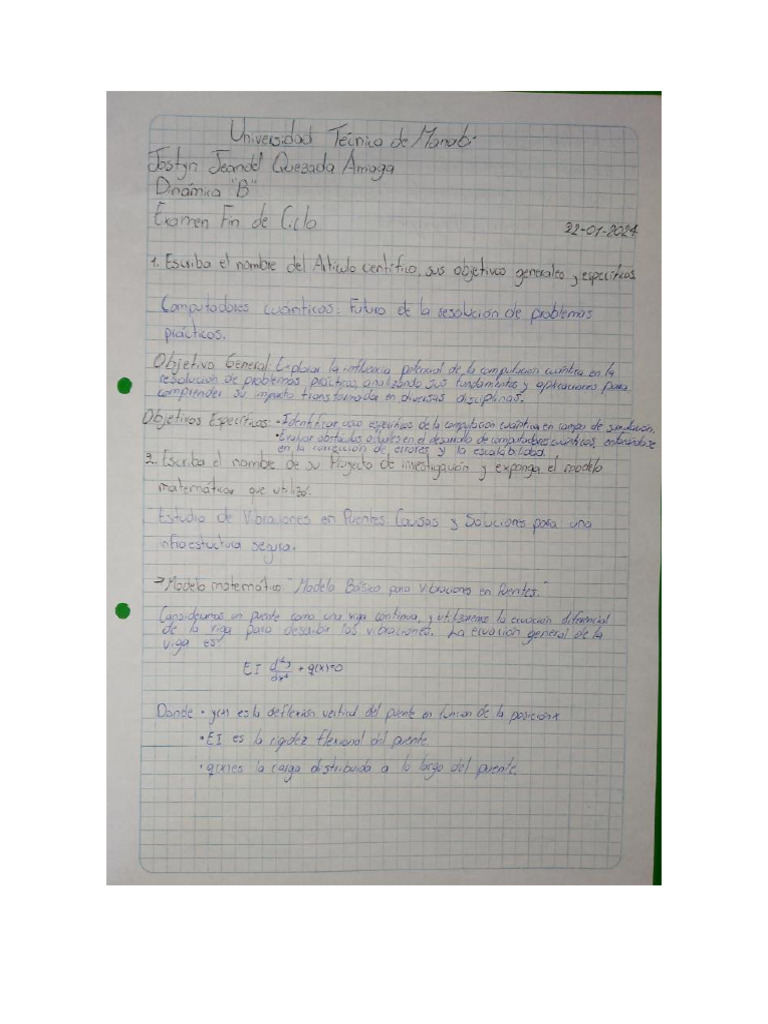 Universidad Técnica de Manabí
Jostyn Jeandel Quezada Arriaga
Dinámica "B"
Examen Fin de Ciclo
22-01-2024
1. Escriba el nombre del Artículo centifico, sus objetivos generales y específicos
Computadores cuánticos: Futuro de la resolución de problemas
prácticos.
Objetivo General: Explorar la influencia potencial de la computación cuántica en la
resolución de problemas prácticos, analizando sus fundamentos y aplicaciones para
comprender su impacto transformada en diversas disciplinas.
Objetivos Específicos: • Identificar usos específicos de la computación cuántica en campo de simulación.
• Evaluar obstáculos actuales en el desarrollo de computadores cuánticos, enfocándose
en la corrección de errores y la escalabilidad.
2. Escriba el nombre de su Proyecto de investigación y exponga el modelo
matemático que utilizó.
Estudio de Vibraciones en Puentes Causas y Soluciones para una
infraestuctura segura.
→ Modelo matemático "Modelo Básico para Vibraciones en Puentes."
Consideramos un puente como una viga continua, y utilizaremos la ecuación diferencial
de la viga para describir las vibraciones. La ecuación general de la
viga es:
EI d⁴y/dx⁴ + q(x)=0
Donde • y(x) es la deflexión vertical del puente en función de la posición x
• EI es la rigidez flexional del puente.
• q(x) es la carga distribuida a lo largo del puente.